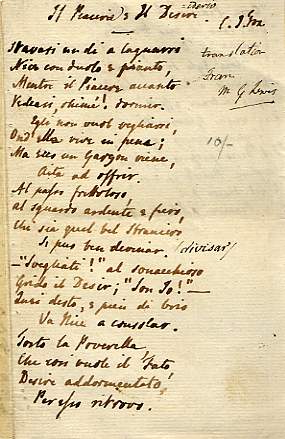 Il Piacere e Il Desir
C. I. Fox
Stavasi un dì a lagnarsi
translation
Nice con duolo e pianto,
from
Mentre il Piacer accanto
M G Lewis
Vedeasi, ohimè! dormir.
Egli non vuol vegliarsi,
10/-
Ond' ella vive in pena;
Ma ecco un Garzon viene,
Aita ad offrir.
Al passo frettoloso,
al sguardo ardente e fiero,
Che sia quel bel straniero
Si può ben
(divisar)
"Svegliati!" al sonnacchioso
Grida il Desir; "Son Io!"
desto, e pien di brio
Va Nice a consolar.
Sorte la Poverella
Che così vuole il Fato,
Desire addormentato,
ritrovo.